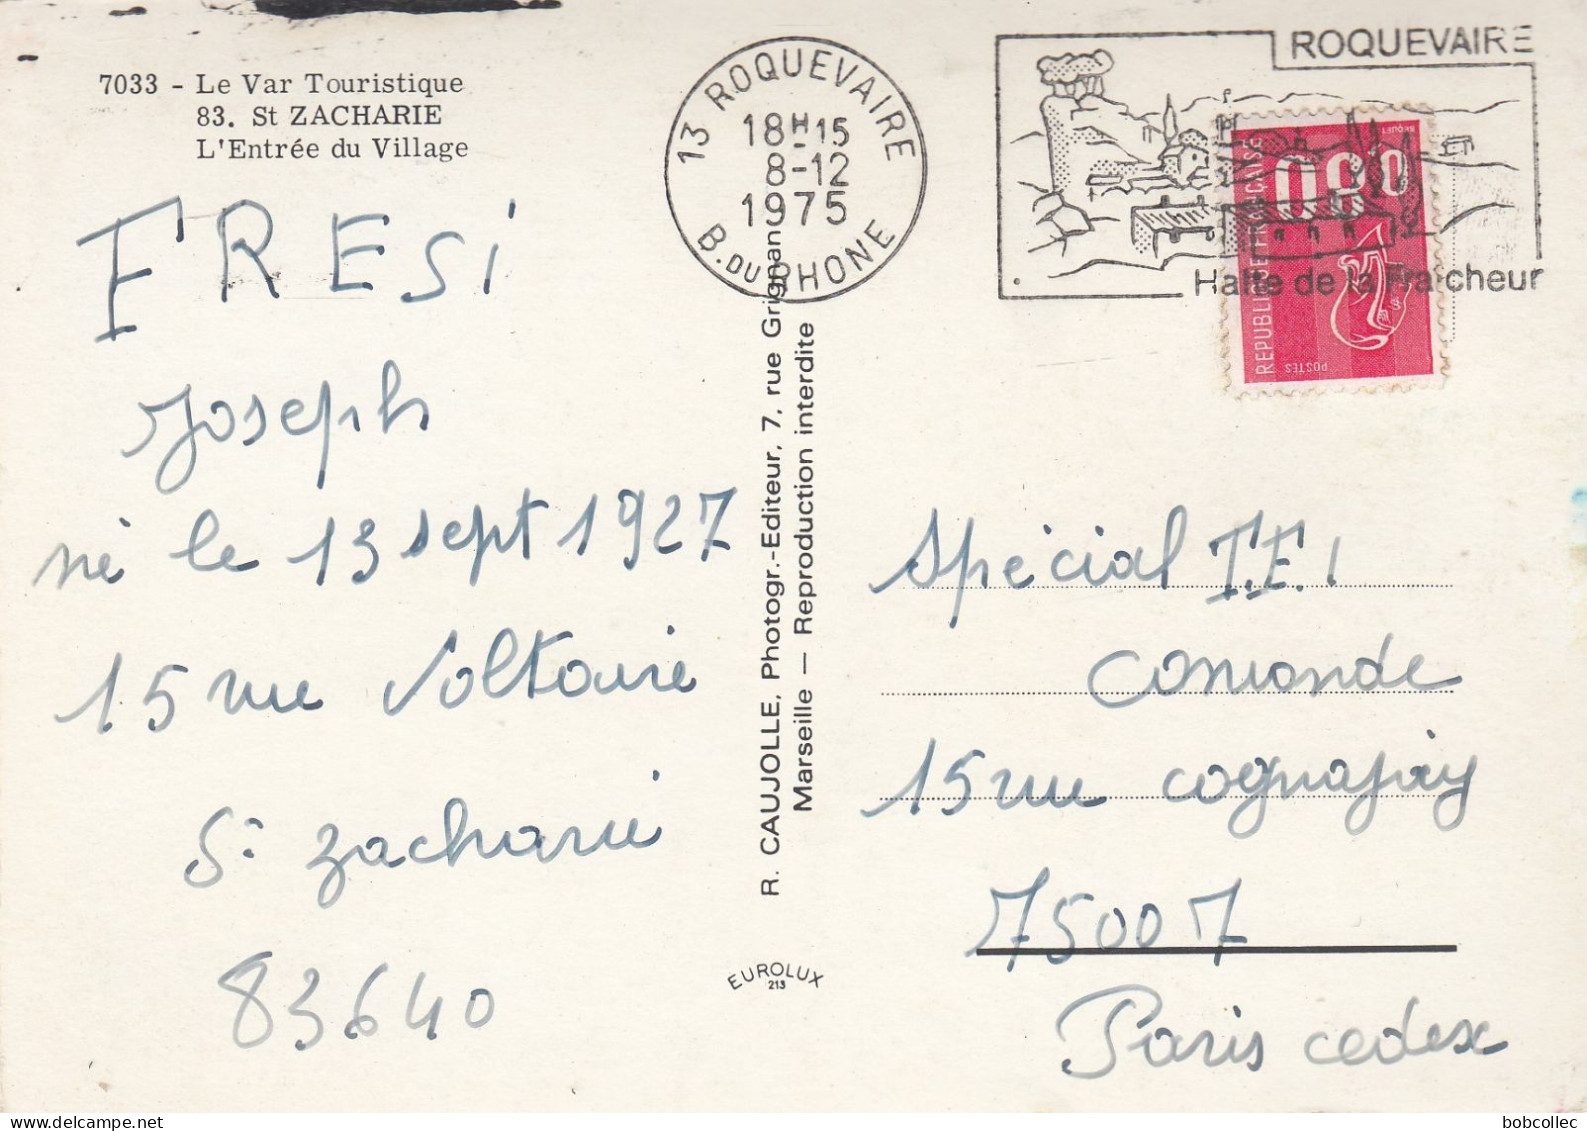 7033 - Le Var Touristique
83. St ZACHARIE
L'Entrée du Village
FRESi
Joseph
né le 13 sept 1927
15 rue Voltaire
St Zacharie
83640
13 ROQUEVAIRE
18H15
8-12
1975
B. DU RHONE
ROQUEVAIRE
Halte de la Fraicheur
REPUBLIQUE FRANÇAISE
0,80
POSTES
BEQUET
R. CAUJOLLE, Photogr.-Editeur, 7, rue Grignan
Marseille — Reproduction interdite
EUROLUX
213
Spécial T.F.1
Comonde
15 rue cognajay
75007
Paris cedex
bobcollec